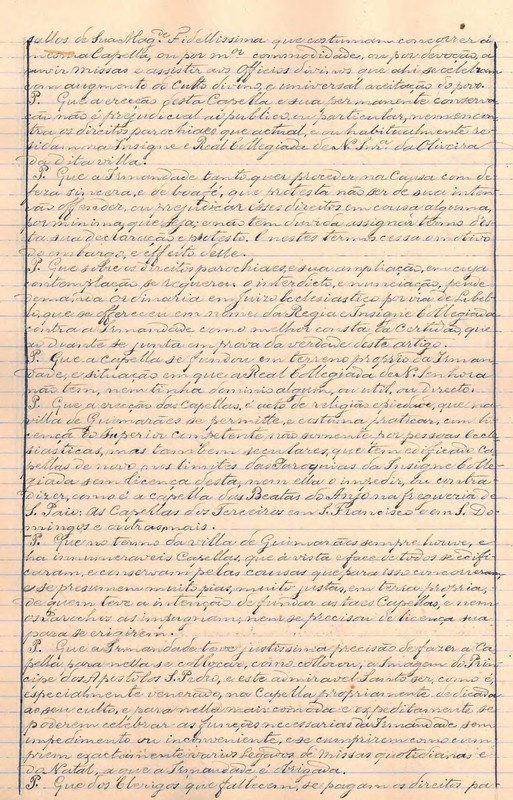 sallos de Sua Mag.e Fidellissima que costumam concorrer á
mesma Capella, ou por m.er commodidade, ou por devoção, a
ouvir missas e assistir aos Officios divinos que ahi se celebram
com augmento do Culto divino, e universal aceitação do povo.
P. Que a erecção desta Capella e sua permanente conserva
ção não é prejudicial ao publico, ou particular, nem encon
tra os direitos parochiaes que actual, e ou habitualmente re
sidam na Insigne e Real Collegiada de N. Snr.a da Oliveira
da dita villa.
P. Que a Irmandade tanto quer proceder na Causa com de
feza sincera, e de boa fé, que protesta não ser de sua inten
ção offender, ou prejudicar esses direitos em cousa alguma,
por minima que seja; e não tem duvida assignar termo des
ta sua declaração e protesto. E nestes termos cessa o motivo
do embargo, e effeito delle.
P. Que sobre os direitos parochiaes, e sua ampliação, em cuja
contemplação se requereu o interdicto, e nunciação, pende
demanda Ordinaria em Juizo ecclesiastico por via de Libel
lo, que se offereceu em nome da Regia e Insigne Collegiada
contra a Irmandade como melhor consta da Certidão, que
ao deante se junta em prova da verdade deste artigo.
P. Que a Capella se fundou em terreno proprio da Irman
dade, e situação em que a Real Collegiada de N. Senhora
não tem, nem tinha dominio algum, ou util, ou directo.
P. Que a erecção das Capellas, é acto de religião e piedade, que na
villa de Guimarães se permitte, e costuma praticar, em li
cença do Superior competente, não somente por pessoas eccle
siasticas, mas tambem seculares, que têm edificado Ca
pellas de novo, nos limites das Paroquias da Insigne Colle
giada sem licença desta, nem ella o impedir, ou contra
dizer, como é a capella das Beatas do Anjo na freguezia de
S. Paio: As Capellas dos Terceiros em S. Francisco e em S. Do
mingos e outras mais.
P. Que no termo da villa de Guimarães sempre houve, e
ha innumeraveis Capellas, que á vista e face de todos se edifi
caram, e conservam pelas causas que para isso concorreram,
e se presumem muito pias, muito justas, em terra propria,
de quem teve a intenção de fundar as taes Capellas, e nem
os Parochos as impugnam, nem se precisou de licença sua
para se erigirem.
P. Que a Irmandade teve justissima precisão de fazer a Ca
pella para nella se collocar, como collocou, a Imagem do Prin
cipe dos Apostolos S. Pedro, e este admiravel Santo ser, como é,
especialmente venerado, na Capella propriamente dedicada
ao seu culto, e para nella mais commoda e expeditamente se
poderem celebrar as funções necessarias da Irmandade sem
impedimento ou inconveniente, e se cumprirem como cum
prem exactamente varios Legados de Missas quotidianas e
do Natal, a que a Irmandade é obrigada.
P. Que dos Clerigos que fallecem, se pagam os direitos pa